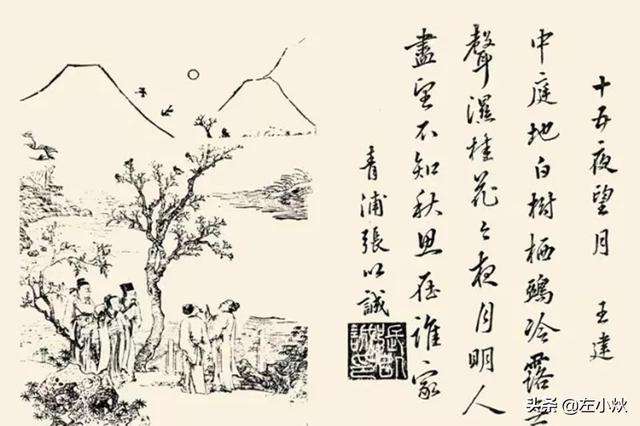 十五夜望月 王建
中庭地白樹栖鴉冷露無
聲濕桂花今夜月明人
盡望不知秋思在誰家
青浦張以誠
头条 @左小炏